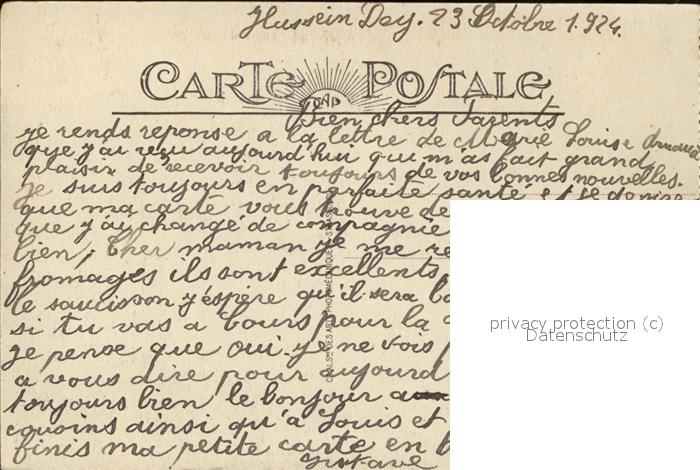 Hussein Dey. 23 Octobre 1.924.
CARTE POSTALE
CAP
Bien chers Parents
je rends reponse a la lettre de Marie Louise
que j'ai reçu aujourd'hui qui m'as fait grand
plaisir de recevoir toujours de vos bonnes nouvelles.
Je suis toujours en parfaite santé et je desire
que ma carte vous trouve de
que j'ai changé de compagnie
bien, Cher maman je me re
fromages ils sont excellents
le saucisson j'éspère qu'il sera bo
si tu vas a Tours pour la
je pense que oui. je ne vois
a vous dire pour aujourd
toujours bien le bonjour a
cousins ainsi qu'à Louis et
finis ma petite carte en
Gustave
privacy protection (c)
Datenschutz